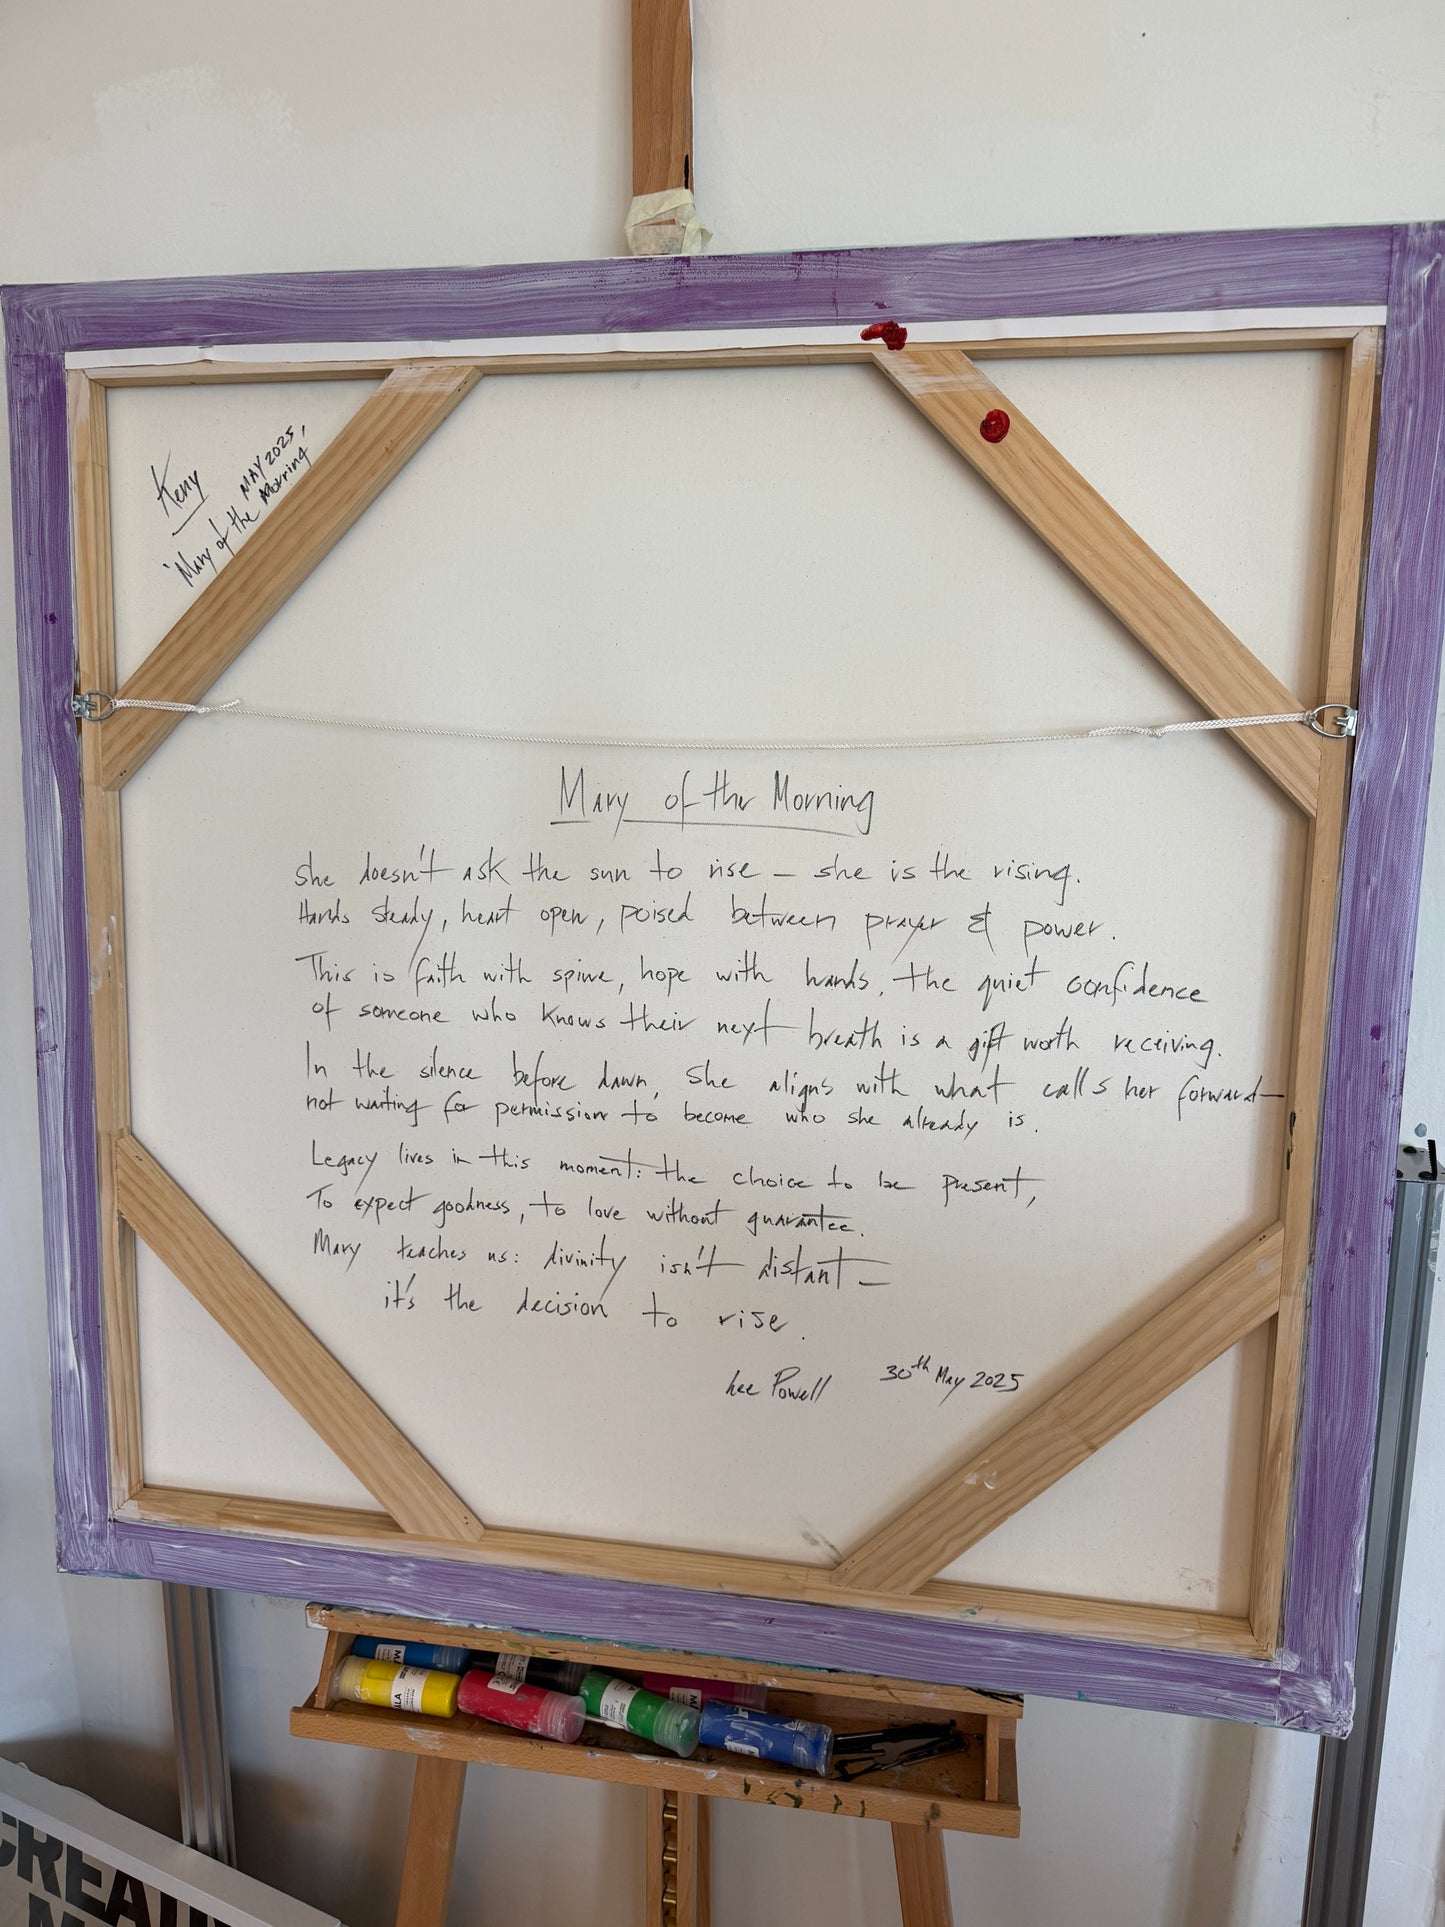 Keny
MAY 2025,
'Mary of the Morning'
Mary of the Morning
She doesn't ask the sun to rise – she is the rising.
Hands steady, heart open, poised between prayer & power.
This is faith with spine, hope with hands, the quiet confidence
of someone who knows their next breath is a gift worth receiving.
In the silence before dawn, she aligns with what calls her forward—
not waiting for permission to become who she already is.
Legacy lives in this moment: the choice to be present,
To expect goodness, to love without guarantee.
Mary teaches us: divinity isn't distant —
it's the decision to rise.
Lee Powell 30th May 2025